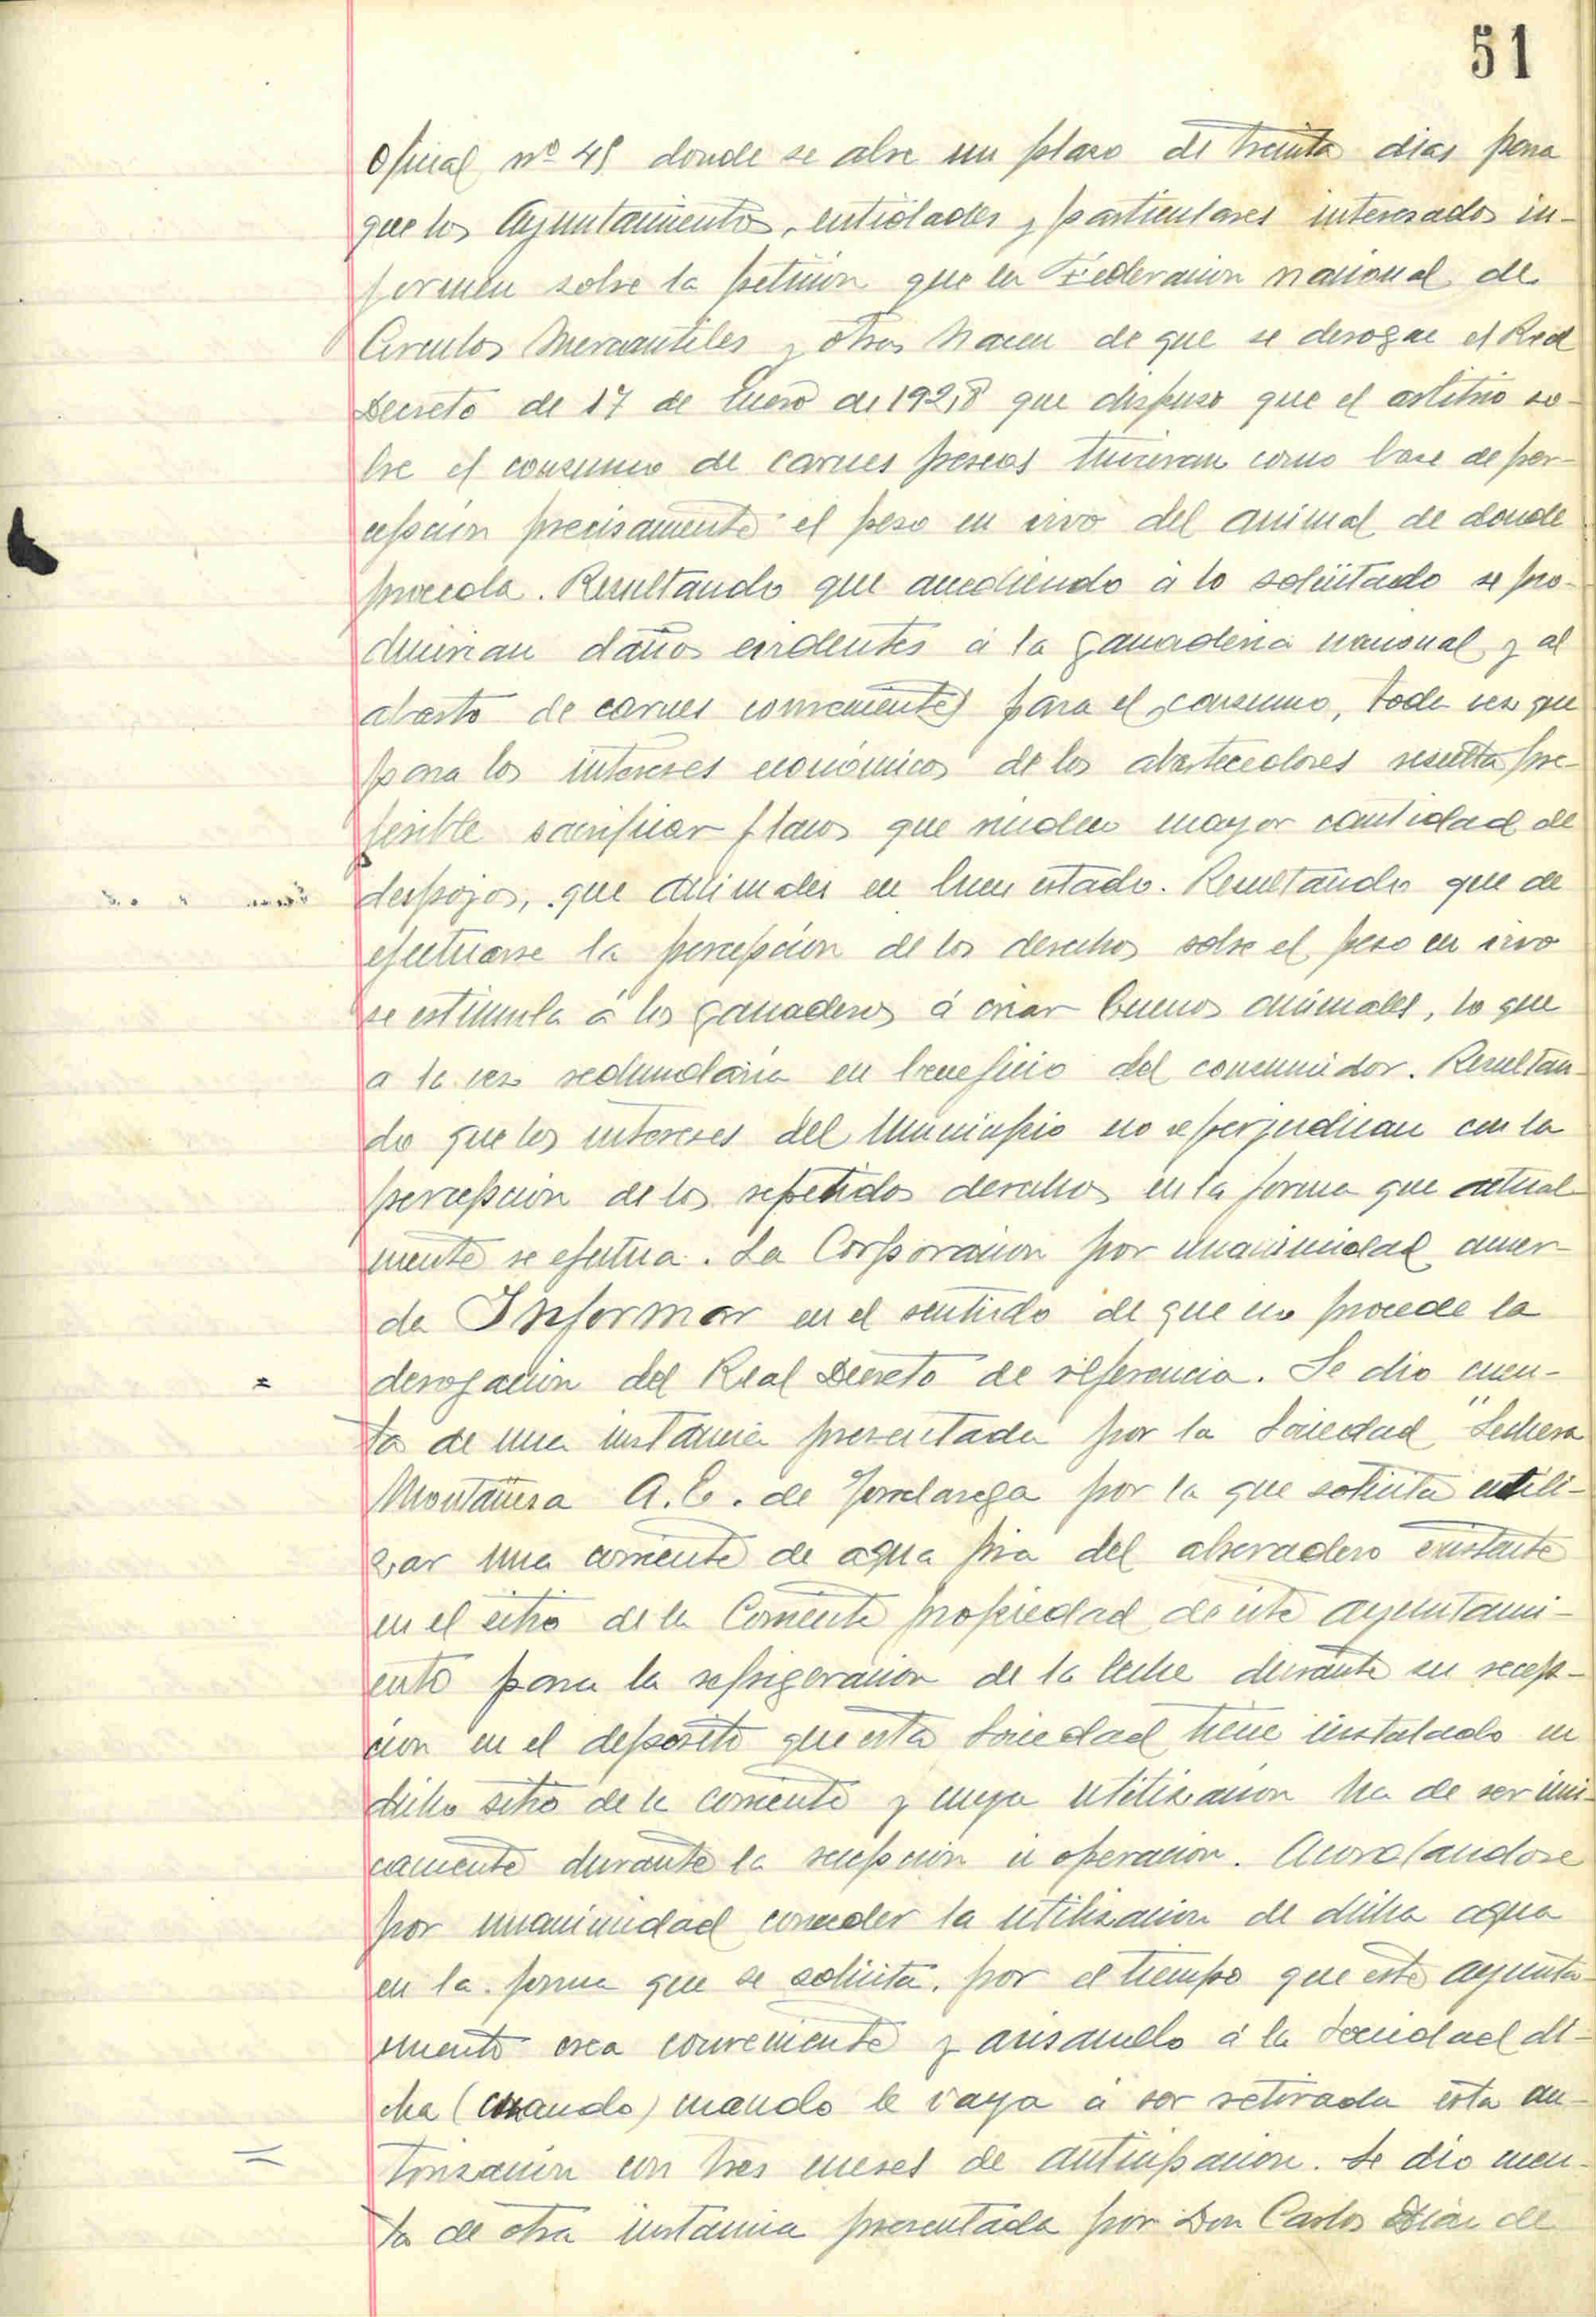 51
Oficial nº 48 donde se abre un plazo de treinta dias para
que los Ayuntamientos, entidades y particulares interesados in-
formen sobre la petición que la Federacion nacional de
Circulos Mercantiles y otros hacen de que se derogue el Real
Decreto de 17 de Enero de 1928 que dispuso que el arbitrio so-
bre el consumo de carnes frescas tuvieran como base de per-
cepcion precisamente el peso en vivo del animal de donde
proceda. Resultando que accediendo á lo solicitado se pro-
ducirian daños evidentes á la ganaderia nacional y al
abasto de carnes convenientes para el consumo, toda vez que
para los intereses económicos de los abastecedores resulta pre-
ferible sacrificar flacos que rinden mayor cantidad de
despojos, que animales en buen estado. Resultando que de
efectuarse la percepcion de los derechos sobre el peso en vivo
se estimula á los ganaderos á criar buenos animales, lo que
a la vez redundaria en beneficio del consumidor. Resultan-
do que los intereses del Municipio no se perjudican con la
percepcion de los repetidos derechos en la forma que actual-
mente se efectua. La Corporacion por unanimidad acuer-
da Informar en el sentido de que no procede la
derogacion del Real Decreto de referencia. Se dio cuen-
ta de una instancia presentada por la Sociedad "Lechera
Montañesa A.E. de Torrelavega por la que solicita utili-
zar una corriente de agua fria del abrevadero existente
en el sitio de la Corriente propiedad de este ayuntami-
ento para la refrigeracion de la leche durante su recep-
cion en el deposito que esta Sociedad tiene instalado en
dicho sitio de la corriente y cuya utilizacion ha de ser uni-
camente durante la recepcion u operacion. Acordandose
por unanimidad conceder la utilizacion de dicha agua
en la forma que se solicita, por el tiempo que este ayunta-
miento crea conveniente y avisando á la Sociedad di-
cha (cuando) cuando le vaya á ser retirada esta au-
torizacion con tres meses de anticipacion. Se dio cuen-
ta de otra instancia presentada por Don Carlos Diaz de